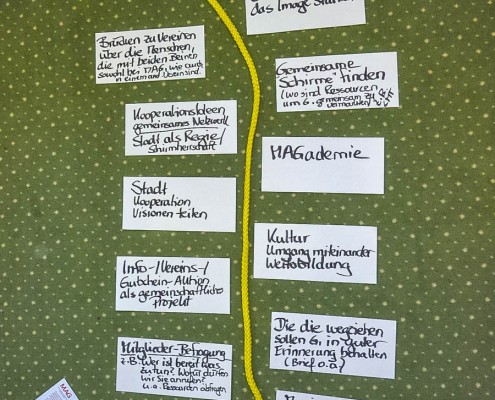 das Image stärken
Brücken zu Vereinen
über die Menschen,
die mit beiden Beinen
sowohl bei MAG, wie auch
in einem and. Verein sind.
Gemeinsame
"Schirme" finden
(wo sind Ressourcen
um G. gemeinsam zu
vermarkten)
Kooperationsideen
gemeinsames Netzwerk
Stadt als Regie/
Schirmherrschaft
MAGademie
Stadt
Kooperation
Visionen teilen
Kultur
Umgang miteinander
Weiterbildung
Info-/Vereins-/
Gutschein-Aktion
als gemeinschaftliches
Projekt
Die die wegziehen
sollen G. in guter
Erinnerung behalten
(Brief o.ä.)
Mitglieder-Befragung
z.B. Wer ist bereit was
zu tun? Wofür dürfen
wir Sie anrufen?
u.a. Ressourcen abfragen
MAG